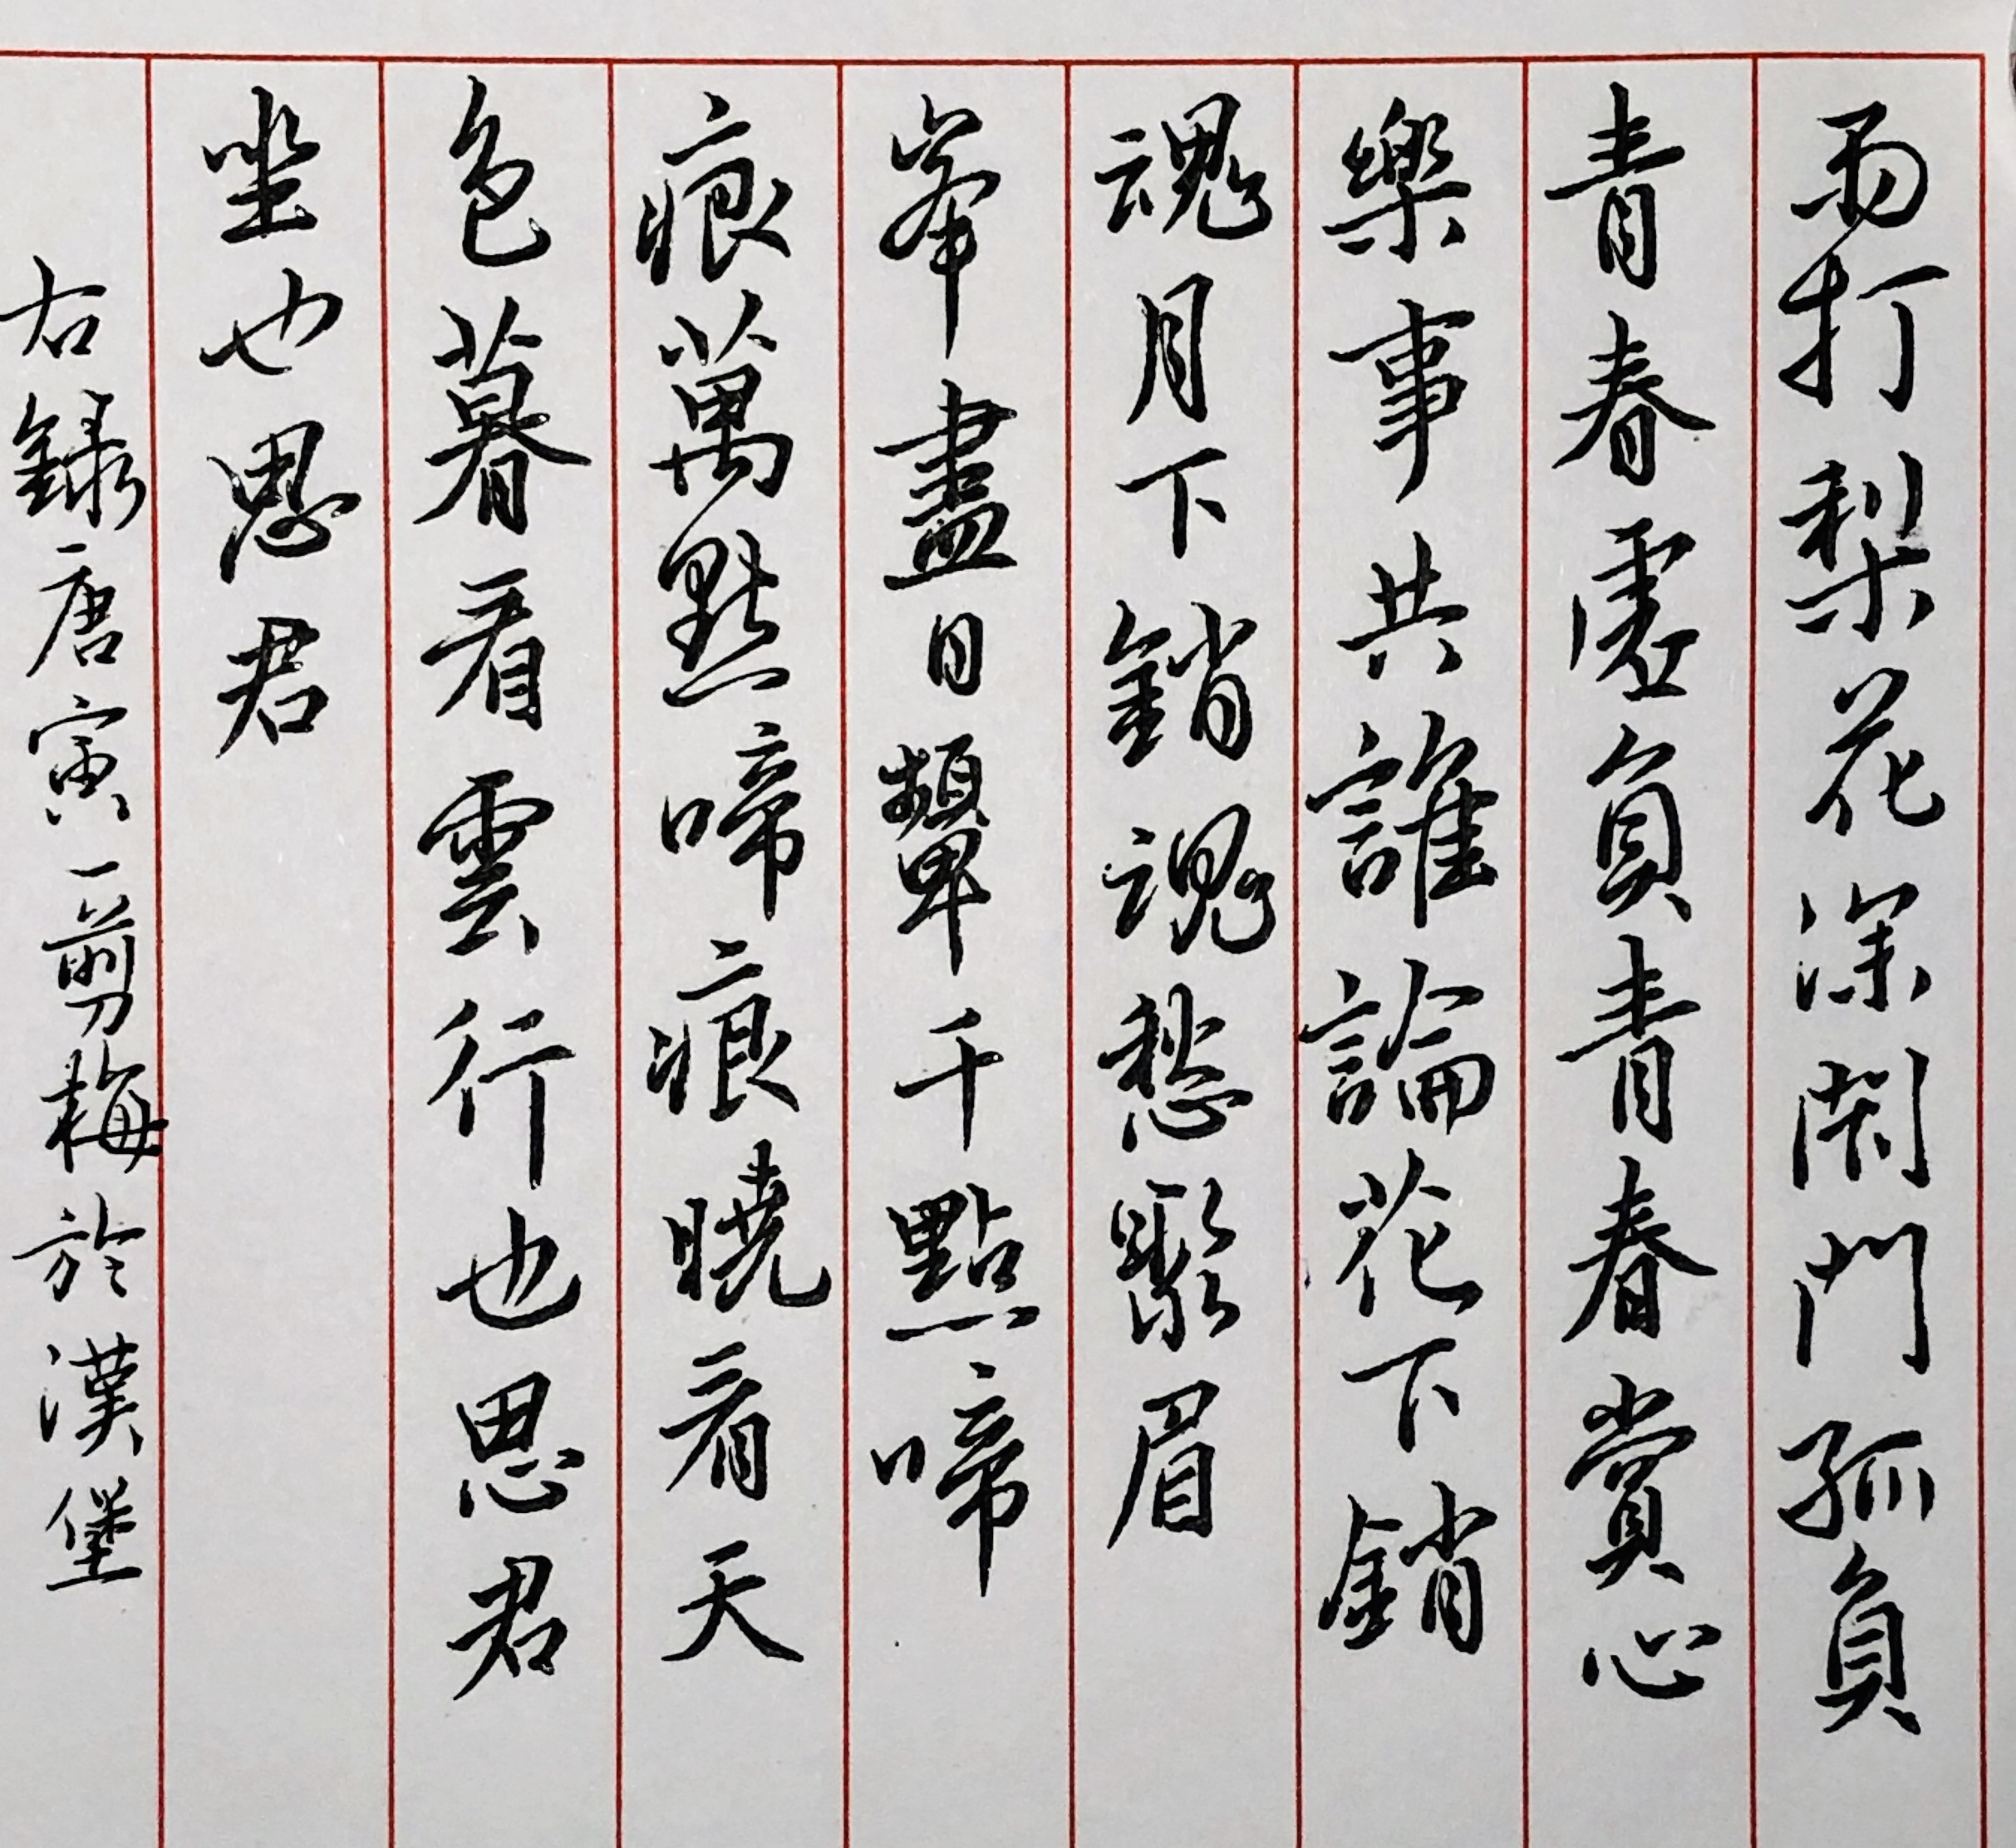 雨打梨花深閉門孤負
青春虛負青春賞心
樂事共誰論花下銷
魂月下銷魂愁聚眉
峯盡日顰千點啼
痕萬點啼痕曉看天
色暮看雲行也思君
坐也思君
右錄唐寅一剪梅於漢堡